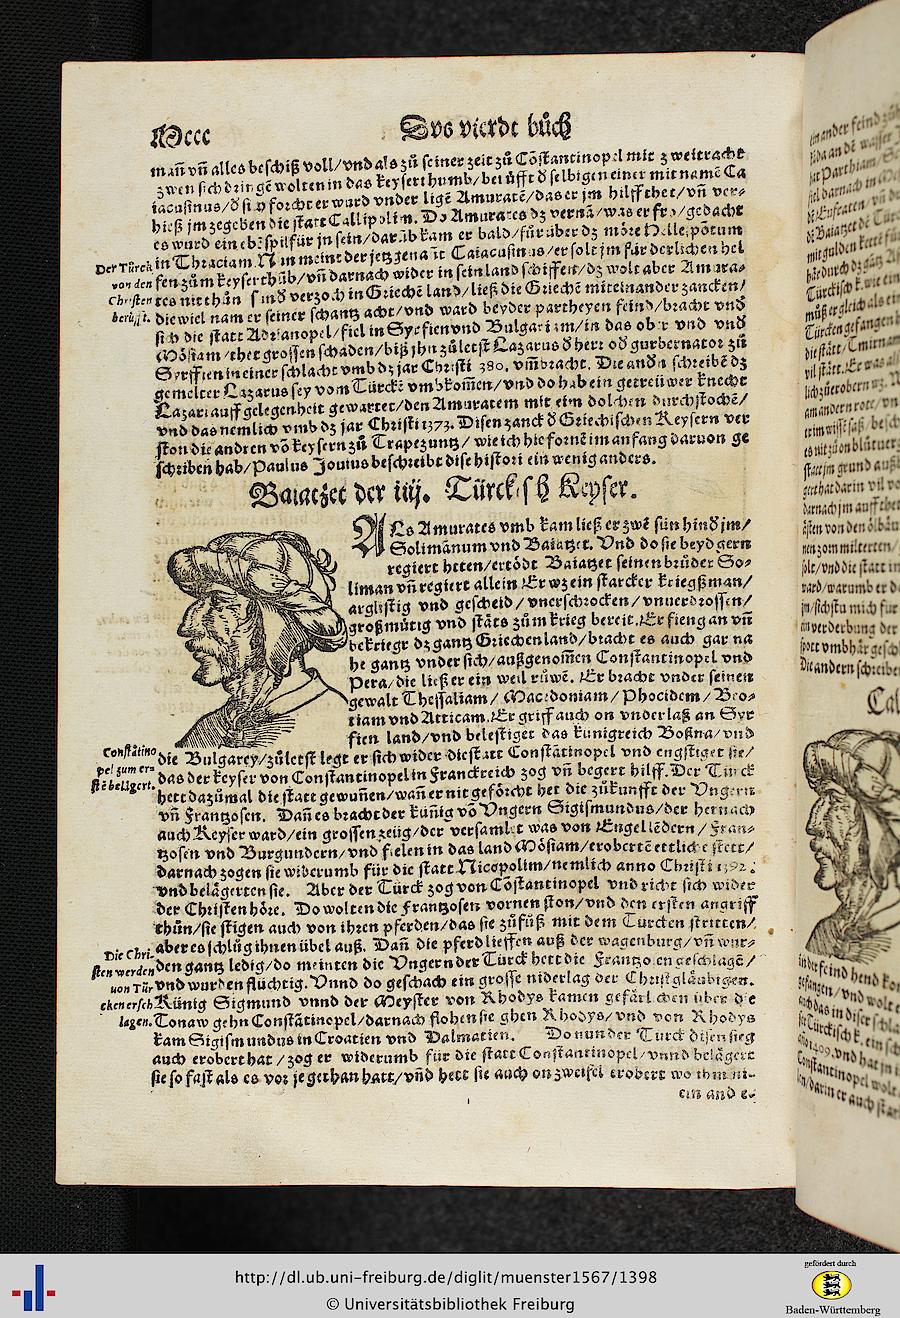 Mccc
Das vierdt bůch
mañ vñ alles beschiß voll/vnd als zů seiner zeit zů Cõstantinopel mit zweitracht
zwen sich dringẽ wolten in das keyserthumb/berůfft ď selbigen einer mit namẽ Ca
tacusinus/ď sich forcht er ward vnder ligẽ Amuratẽ/das er im hilff thet/vñ ver-
hieß jm zegeben die statt Callipolim. Do Amurates dz vernã/was er fro/gedacht
es wurd ein ebẽ spil für jn sein/darüb kam er bald/für über dz möre Hellespõtum
in Thraciam. Nun meint der jetz genãt Catacusinus/er solt jm fürderlichen hel
Der Türck
von den
Christen
berüfft.
fen zům keyserthůb/vñ darnach wider in sein land schiffen/dz wolt aber Amura-
tes nit thůn sund verzoch in Griechẽ land/ließ die Griechẽ miteinander zancken/
die wiel nam er seiner schantz acht/vnd ward beyder partheyen feind/bracht vnd
sich die statt Adrianopel/fiel in Syrfien vnd Bulgariam/in das ober vnd vnd
Mösiam/thet grossen schaden/biß jhn zůletst Lazarus ď herr oď gubernator zů
Syrffien in einer schlacht vmb dz jar Christi 380. vmbracht. Die andň schreibẽ dz
gemelter Lazarus sey vom Türckẽ vmbkom̃en/vnd do hab ein getreüwer knecht
Lazari auff gelegenheit gewartet/den Amuratem mit eim dolchen durchstochẽ/
vnd das nemlich vmb dz jar Christi 1373. Disen zanck ď Griechischen Keysern ver
ston die andren võ keysern zů Trapezuntz/wie ich hie fornẽ im anfang daruon ge
schriben hab/Paulus Jouius beschreibt dise histori ein wenig anders.
Baiatzet der iiij. Türckisch Keyser.
ALs Amurates vmb kam ließ er zwẽ sün hinď jm/
Solimanum vnd Baiatzet. Vnd do sie beyd gern
regiert hetten/ertödt Baiatzet seinen brůder So-
liman vñ regiert allein. Er wz ein starcker kriegßman/
arglistig vnd gescheid/vnerschrocken/vnuerdrossen/
großmütig vnd stäts zům krieg bereit. Er fieng an vñ
bekriegt dz gantz Griechenland/bracht es auch gar na
he gantz vnder sich/außgenom̃en Constantinopel vnd
Pera/die ließ er ein weil rüwẽ. Er bracht vnder seinen
gewalt Thessaliam/Macedoniam/Phocidem/Beo-
tiam vnd Atticam. Er griff auch on vnderlaß an Syr
fien land/vnd belestiget das künigreich Boßna/vnd
Constãtino
pel zum er-
stẽ belägert.
die Bulgarey/zůletst legt er sich wider die statt Constãtinopel vnd engstiget sie/
das der keyser von Constantinopel in Franckreich zog vñ begert hilff. Der Türck
hett dazůmal die statt gewuñen/wañ er nit geförcht het die zůkunfft der Vngern
vñ Frantzosen. Dañ es bracht der künig võ Vngern Sigismundus/der hernach
auch Keyser ward/ein grossen zeüg/der versamlet was von Engellẽdern/Fran-
tzosen vnd Burgundern/vnd fielen in das land Mösiam/erobertẽ ettliche stett/
darnach zogen sie widerumb für die statt Nicopolim/nemlich anno Christi 1392.
vnd belägerten sie. Aber der Türck zog von Cõstantinopel vnd richt sich wider
der Christen höre. Do wolten die Frantzosen vornen ston/vnd den ersten angriff
thůn/sie stigen auch von ihren pferden/das sie zůfůß mit dem Türcken stritten/
Die Chri-
sten werden
von Tür
cken ersch
lagen.
aber es schlůg ihnen übel auß. Dañ die pferd lieffen auß der wagenburg/vñ wur-
den gantz ledig/do meinten die Vngern der Türck hett die Frantzosen geschlagẽ/
vnd wurden flüchtig. Vnnd do geschach ein grosse niderlag der Christgläubigen.
Künig Sigmund vnnd der Meyster von Rhodys kamen gefärlichen über die
Tonaw gehn Constãtinopel/darnach flohen sie ghen Rhodys/vnd von Rhodys
kam Sigismundus in Croatien vnd Dalmatien. Do nun der Türck disen sieg
auch erobert hat/zog er widerumb für die statt Constantinopel/vnnd belägert
sie so fast als es vor je gethan hatt/vnd hett sie auch on zweifel erobert wo ihm ni-
ein ander
http://dl.ub.uni-freiburg.de/diglit/muenster1567/1398
© Universitätsbibliothek Freiburg
gefördert durch
Baden-Württemberg